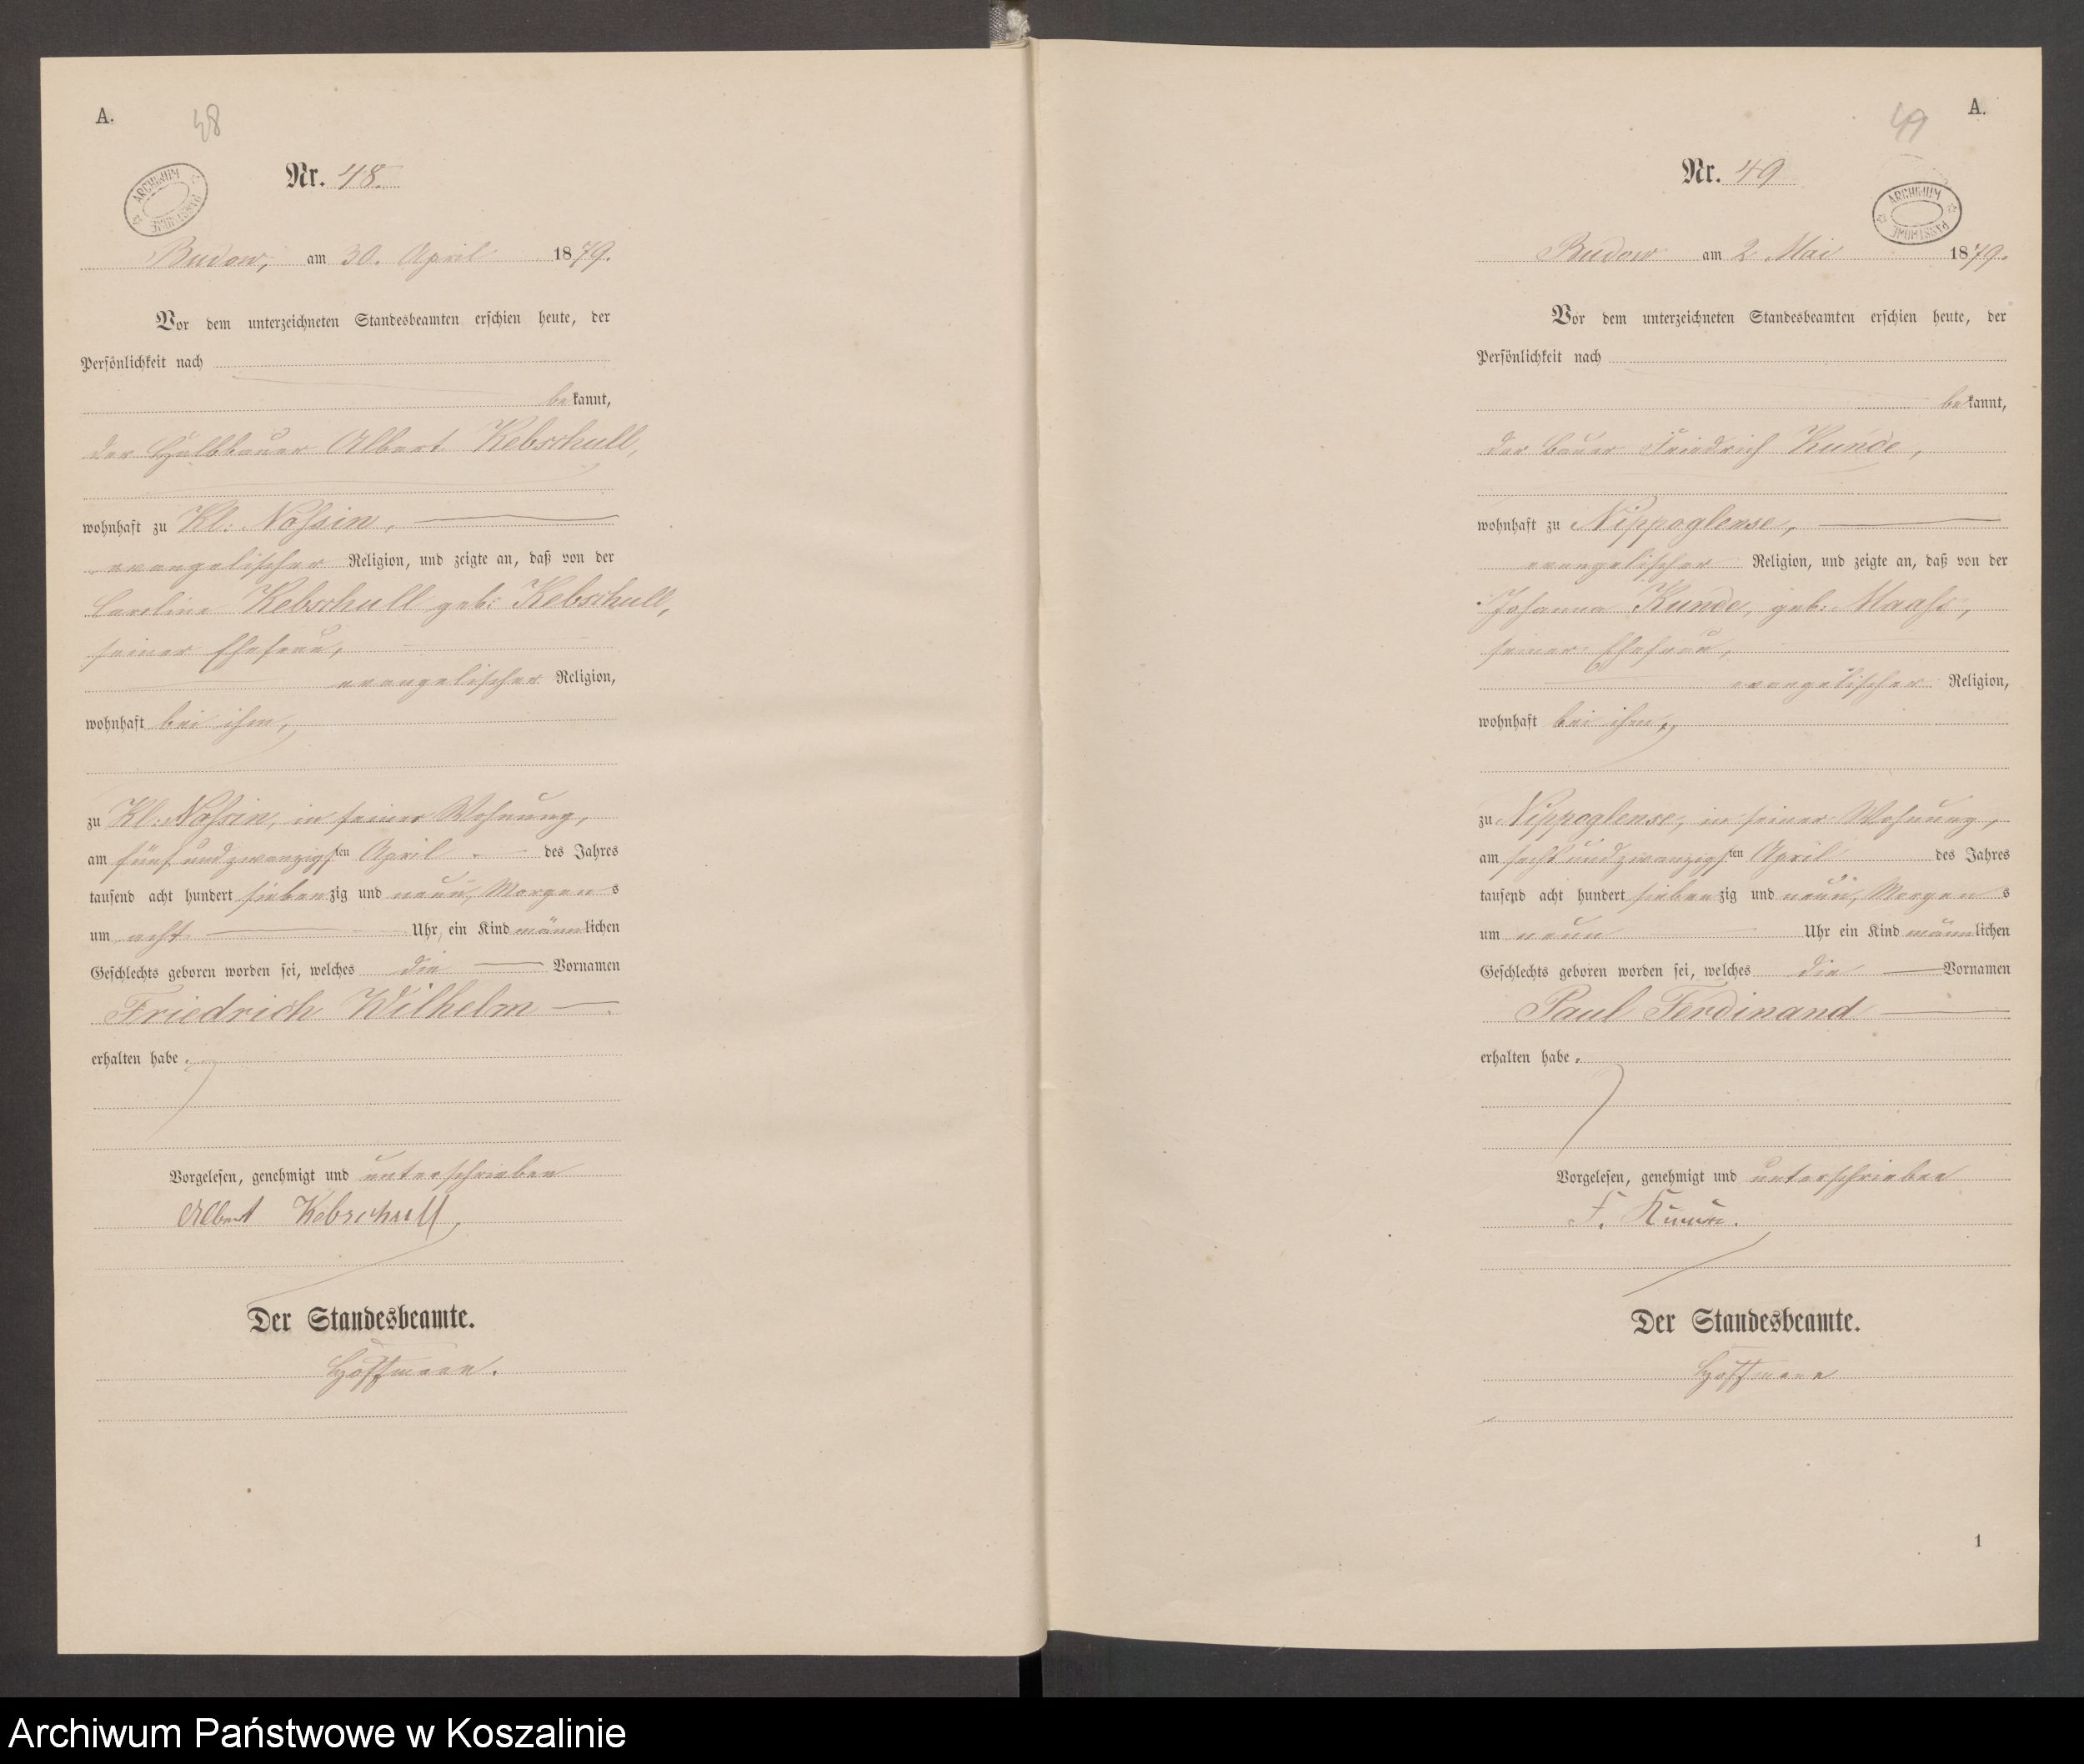 A.
48
ARCHIWUM PAŃSTWOWE
Nr. 48.
Budow, am 30. April 1879.
Vor dem unterzeichneten Standesbeamten erschien heute, der
Persönlichkeit nach
bekannt,
der Halbbauer Albert Kebschull,
wohnhaft zu Kl: Nossin,
evangelischer Religion, und zeigte an, daß von der
Caroline Kebschull geb: Kebschull,
seiner Ehefrau,
evangelischer Religion,
wohnhaft bei ihm,
zu Kl: Nossin, in seiner Wohnung,
am fünf und zwanzigsten April des Jahres
tausend acht hundert siebenzig und neun, Morgens
um acht Uhr ein Kind männlichen
Geschlechts geboren worden sei, welches die Vornamen
Friedrich Wilhelm
erhalten habe.
Vorgelesen, genehmigt und unterschrieben
Albert Kebschull,
Der Standesbeamte.
Hoffmann.
A.
49
ARCHIWUM PAŃSTWOWE
Nr. 49
Budow am 2 Mai 1879.
Vor dem unterzeichneten Standesbeamten erschien heute, der
Persönlichkeit nach
bekannt,
der Bauer Friedrich Kunde,
wohnhaft zu Nippoglense,
evangelischer Religion, und zeigte an, daß von der
Johanna Kunde, geb: Maaß,
seiner Ehefrau,
evangelischer Religion,
wohnhaft bei ihm,
zu Nippoglense, in seiner Wohnung,
am sechs und zwanzigsten April des Jahres
tausend acht hundert siebenzig und neun, Morgens
um neun Uhr ein Kind männlichen
Geschlechts geboren worden sei, welches die Vornamen
Paul Ferdinand
erhalten habe.
Vorgelesen, genehmigt und unterschrieben
F. Kunde.
Der Standesbeamte.
Hoffmann
1
Archiwum Państwowe w Koszalinie